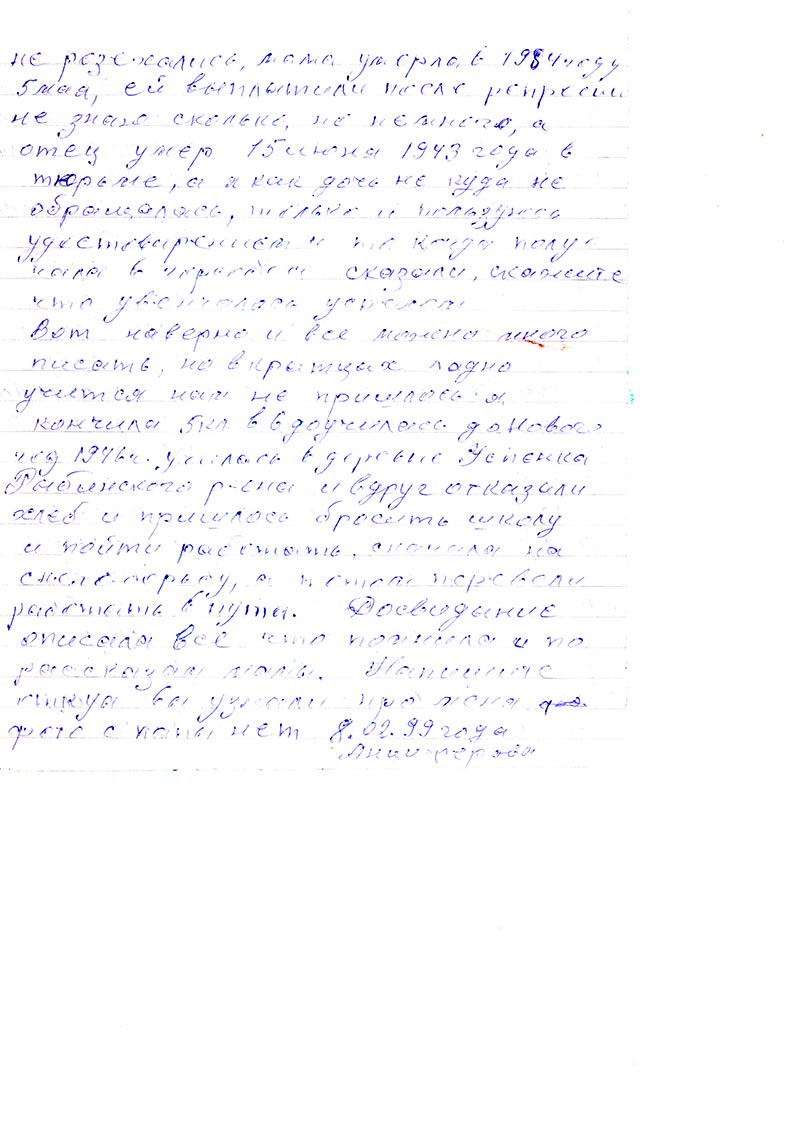 не розежались, мама умерла в 1984 году
5 мая, ей выплатили после репресии
не знаю сколько, но немного, а
отец умер 15 июня 1943 года в
тюрьме, а я как дочь не куда не
обращалась, только и пользуюсь
удостоверением и то когда полу-
чала в сказали, скажите
что увенчалось успехом
Вот наверно и все можно много
писать, но вкратцах ладно
учится нам не пришлось я
кончила 5кл. в 6 доучилась до Нового
год 1946г. училась в деревне Успенка
Рыбинского р-она и вдруг отказали
хлеб и пришлось бросить школу
и пойти работать, сначала на
снегоборьбу, а потом перевели
работать в пути. Досвидание
описала все что помнила и по
рассказам мамы. Напишите
откуа вы узнали про меня
фото с папы нет 8.02.99 года
Анциферова